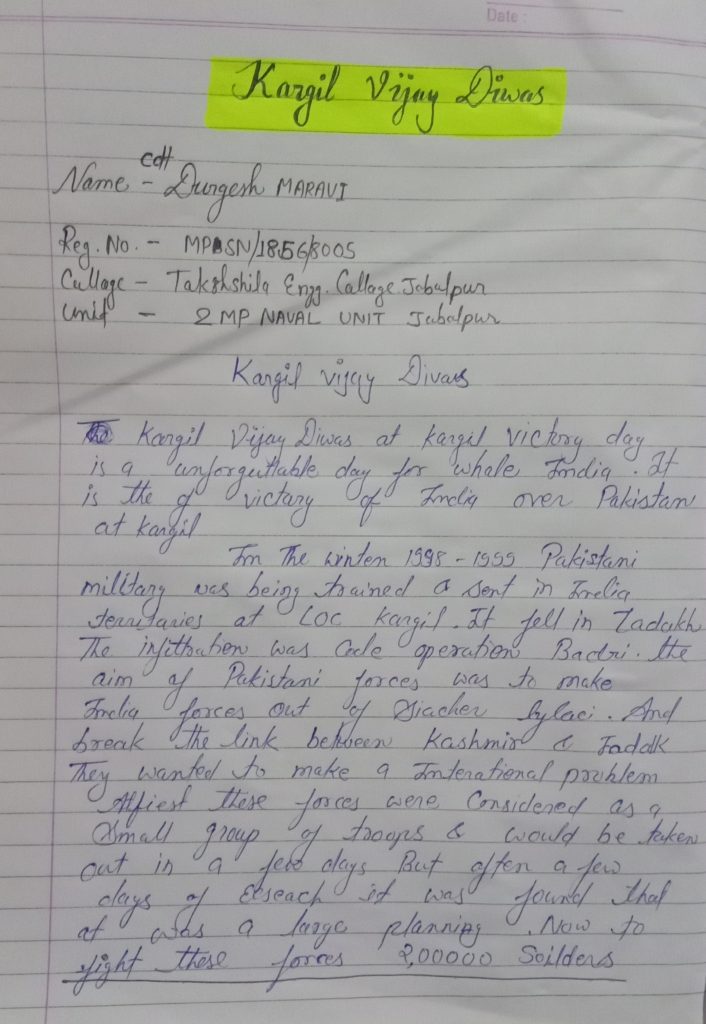 Date :
Kargil Vijay Diwas
cdt
Name - Durgesh MARAVI
Reg. No. - MPBSN/1856/8005
Cullage - Takshshila Engg. Callage Jabalpur
Unit - 2 MP NAVAL UNIT Jabalpur
Kargil vijay Divas
Kargil Vijay Diwas at kargil victory day
is a unforguttable day for whale India. It
is the of victary of India over Pakistan
at kargil
In The winter 1998 - 1999 Pakistani
military was being trained & sent in India
territaries at LOC kargil. It fell in Ladakh
The infittration was Code operation Badri. the
aim of Pakistani forces was to make
India forces out of Siacher. And
break the link between Kashmir &
They wanted to make a Interational problem
Atfiest these forces were Considered as a
Small group of troops & would be taken
out in a few days But after a few
days of it was found that
at was a large planning. Now to
fight these forces 2,00000 Soilders